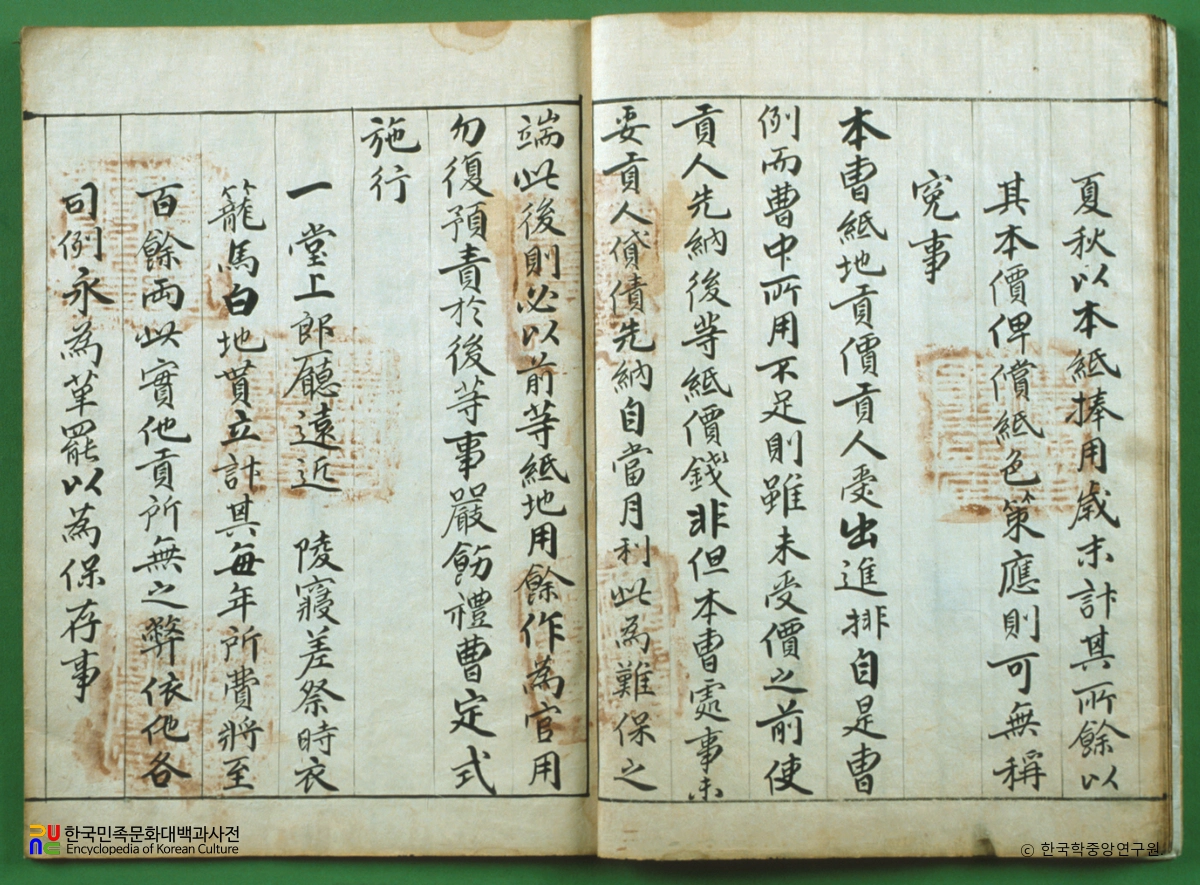 夏秋以本紙捧用歲末計其所餘以
其本價俾償紙色策應則可無稱
寃事
本曹紙地貢價貢人受出進排自是曹
例而曹中所用不足則雖未受價之前使
貢人先納後等紙價錢非但本曹處事未
妥貢人貸債先納自當月利此為難保之
端此後則必以前等紙地用餘作為官用
勿復預責於後等事嚴飭禮曹定式
施行
一堂上郎廳遠近 陵寢差祭時衣
籠馬白地貰立計其每年所費將至
百餘兩此實他貢所無之弊依他各
司例永為革罷以為保存事
한국민족문화대백과사전
Encyclopedia of Korean Culture
ⓒ 한국학중앙연구원